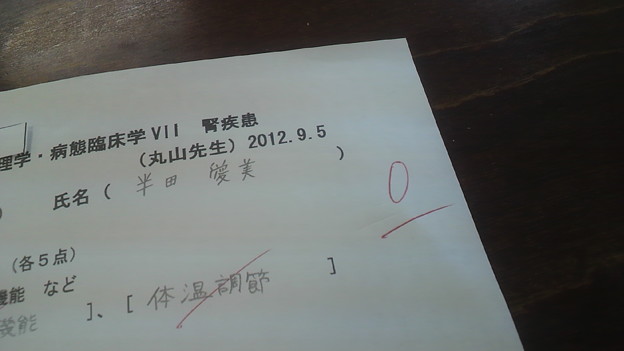 理学・病態臨床学VII 腎疾患
(丸山先生)2012.9.5
) 氏名( 半田 愛美 )
0
(各5点)
機能 など
機能 ]、[ 体温調節 ]